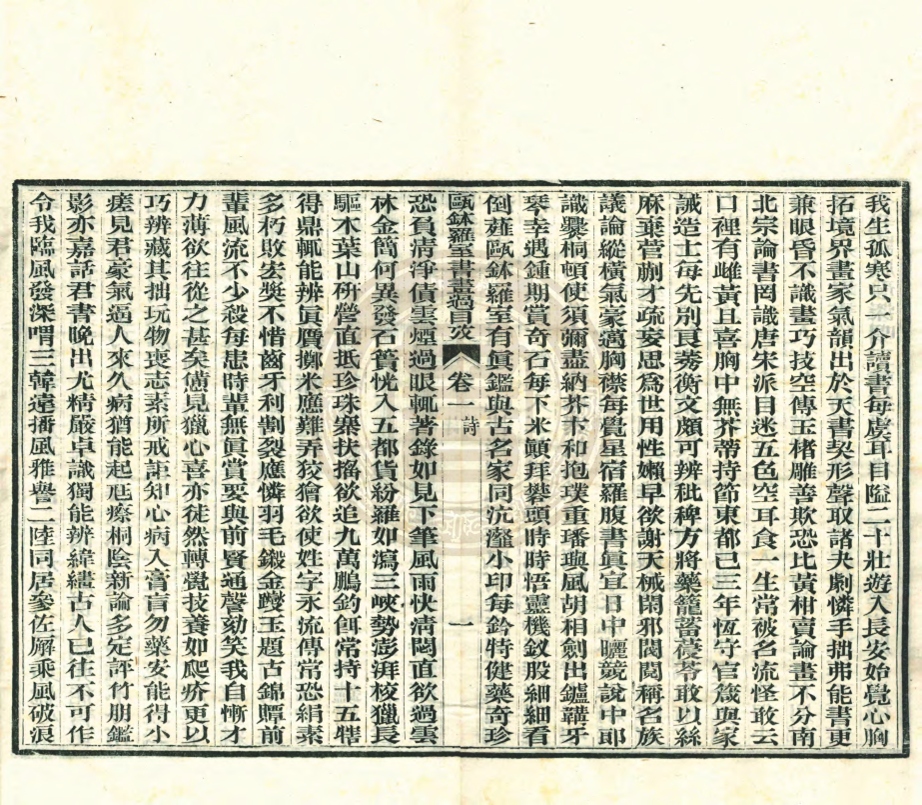 我生孤寒只一介讀書每虞耳目隘二十壯遊入長安始覺心胸
拓境界畫家氣韻出於天書契形聲取諸夬劇憐手拙弗能書更
兼眼昏不識畫巧技空傳玉楮雕善欺恐比黃柑賣論畫不分南
北宗論書罔識唐宋派目迷五色空耳食一生常被名流怪敢云
口裡有雌黃且喜胸中無芥蒂持節東都已三年恆守官箴與家
誡造士每先別良莠衡文頗可辨秕稗方將藥籠蓄蓡苓敢以絲
麻棄菅蒯才疏妄思為世用性嬾早欲謝天械閑邪閣閱稱名族
議論縱橫氣豪邁胸襟每覺星宿羅腹書真宜日中曬競說中郎
識爨桐頓使須彌盡納芥卞和抱璞重璠璵風胡相劍出鑪鞴牙
琴幸遇鍾期賞奇石每下米顛拜攀頭時時悟靈機釵股細細看
倒薤甌鉢羅室有真鑑與古名家同沆瀣小印每鈐特健藥奇珍
甌鉢羅室書畫過目攷 卷一詩 一
恐負清淨債雲煙過眼輒著錄如見下筆風雨快清閟直欲過雲
林金簡何異發石簣恍入五都貨紛羅如瀉三峽勢澎湃校獵長
驅木葉山研營直抵珍珠寨扶搖欲追九萬鵬釣餌常持十五犗
得鼎輒能辨真贗擲米應難弄狡獪欲使姓字永流傳常恐絹素
多朽敗宏獎不惜齒牙利剸裂應憐羽毛鎩金躞玉題古錦贉前
輩風流不少殺每恚時輩無真賞要與前賢通謦欬笑我自慚才
力薄欲往從之甚矣憊見獵心喜亦徒然轉覺技養如爬疥更以
巧辨藏其拙玩物喪志素所戒詎知心病入膏肓勿藥安能得小
瘥見君豪氣逼人來久病猶能起尫瘵桐陰新論多定評竹朋鑑
影亦嘉話君書晚出尤精嚴卓識獨能辨緯繣古人已往不可作
令我臨風發深喟三韓遠播風雅譽二陸同居參佐廨乘風破浪